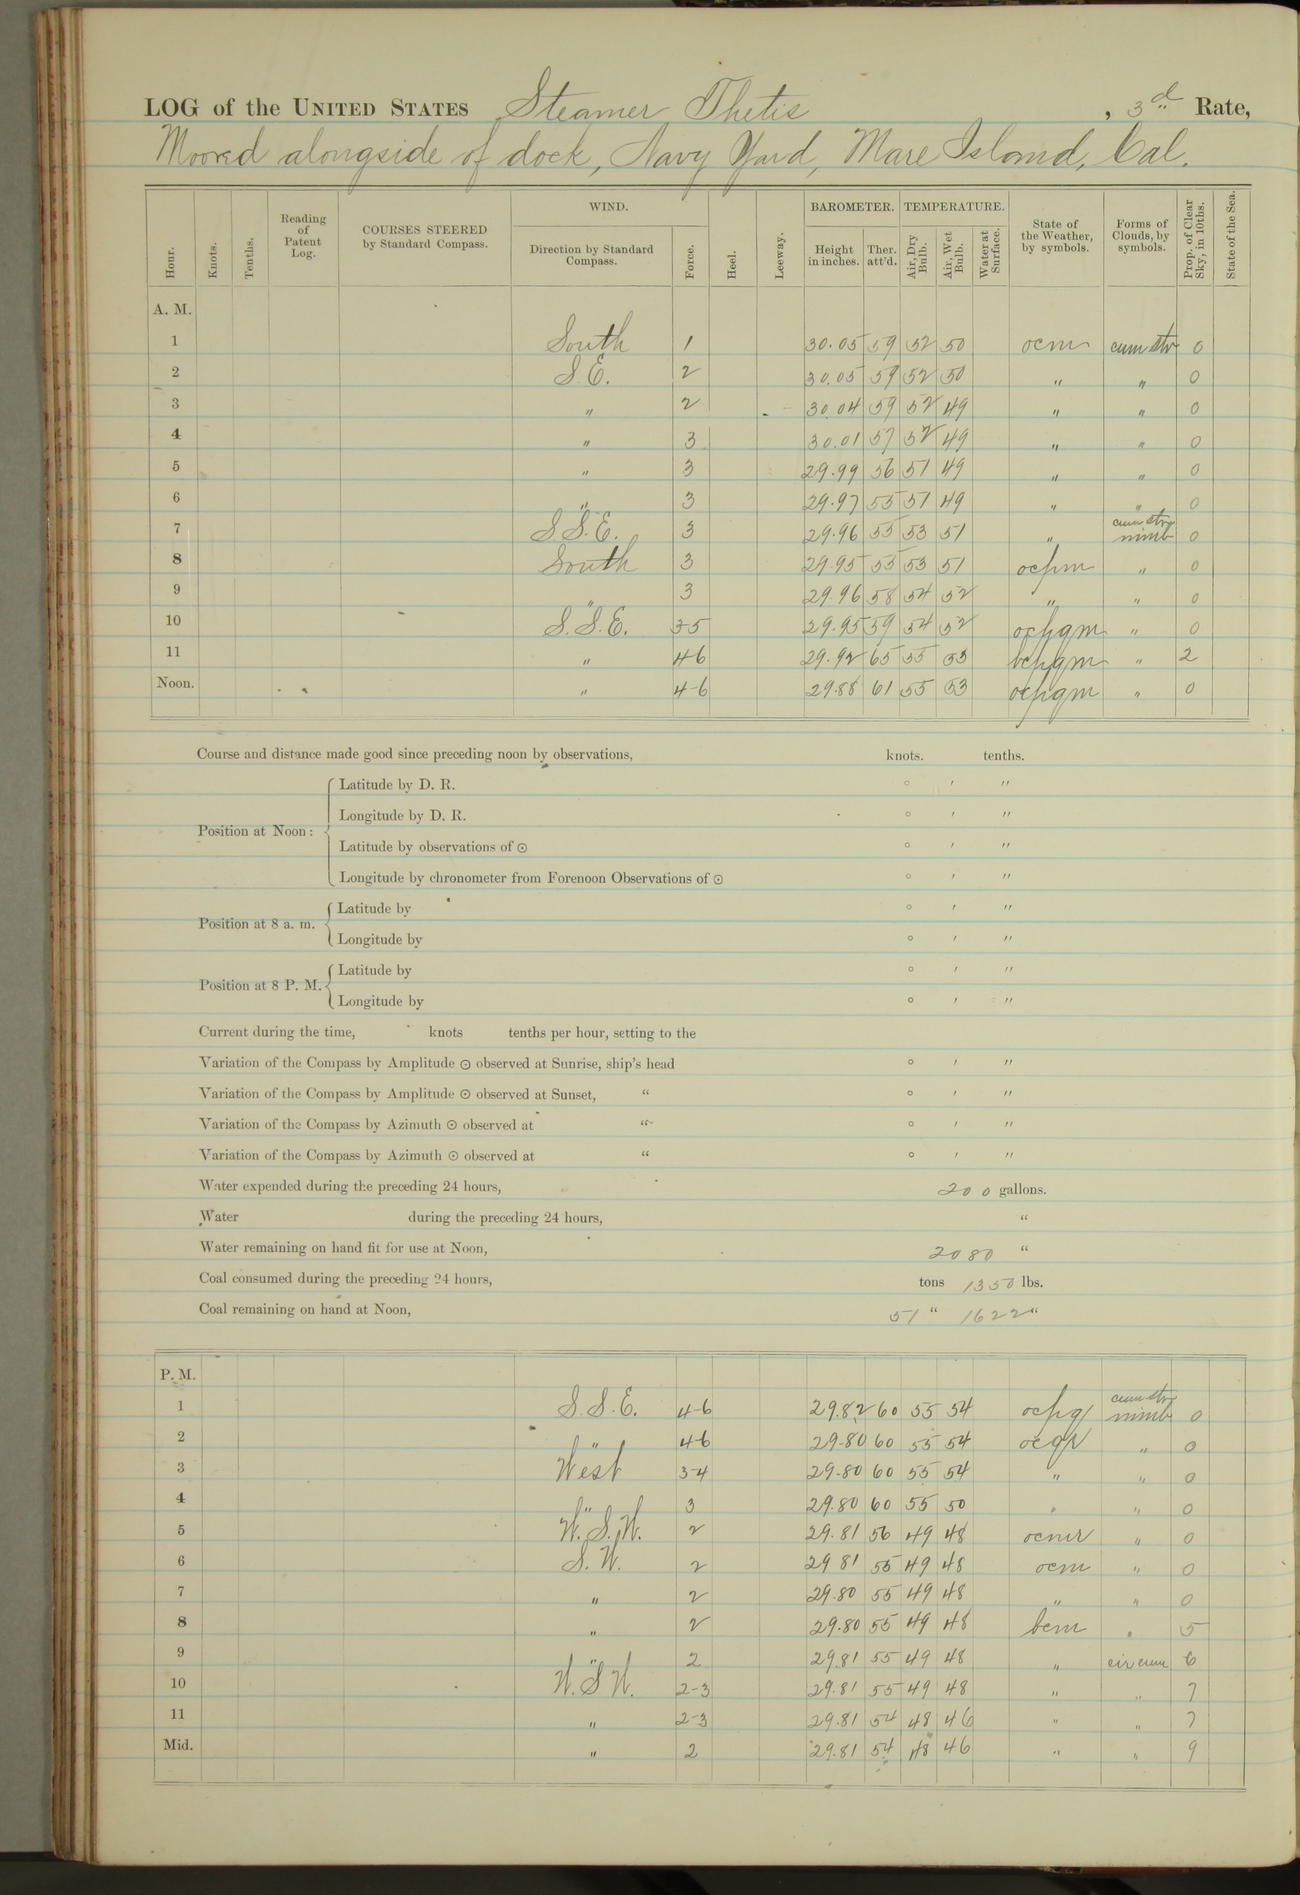 LOG of the UNITED STATES Steamer Thetis, 3d Rate,
Moored alongside of dock, Navy Yard, Mare Island, Cal.
WIND. BAROMETER. TEMPERATURE.
Hour. Knots. Tenths. Reading of Patent Log. COURSES STEERED by Standard Compass. Direction by Standard Compass. Force. Heel. Leeway. Height in inches. Ther. att'd. Air, Dry Bulb. Air, Wet Bulb. Water at Surface. State of the Weather, by symbols. Forms of Clouds, by symbols. Prop. of Clear Sky, in 10ths. State of the Sea.
A. M.
1 South 1 30.05 59 52 50 ocm cum str 0
2 S.E. 2 30.05 59 52 50 " " 0
3 " 2 30.04 59 52 49 " " 0
4 " 3 30.01 57 52 49 " " 0
5 " 3 29.99 56 51 49 " " 0
6 " 3 29.97 55 51 49 " " 0
7 S.S.E. 3 29.96 55 53 51 " cum str nimb 0
8 South 3 29.95 55 53 51 ocpm " 0
9 " 3 29.96 58 54 52 " " 0
10 S.S.E. 3-5 29.95 59 54 52 ocpqm " 0
11 " 4-6 29.92 65 55 53 bcpqm " 2
Noon. " 4-6 29.88 61 55 53 ocpqm " 0
Course and distance made good since preceding noon by observations, knots. tenths.
Position at Noon: Latitude by D. R. ° ′ ″
Longitude by D. R. ° ′ ″
Latitude by observations of ☉ ° ′ ″
Longitude by chronometer from Forenoon Observations of ☉ ° ′ ″
Position at 8 a. m. Latitude by ° ′ ″
Longitude by ° ′ ″
Position at 8 P. M. Latitude by ° ′ ″
Longitude by ° ′ ″
Current during the time, knots tenths per hour, setting to the
Variation of the Compass by Amplitude ☉ observed at Sunrise, ship's head ° ′ ″
Variation of the Compass by Amplitude ☉ observed at Sunset, " ° ′ ″
Variation of the Compass by Azimuth ☉ observed at " ° ′ ″
Variation of the Compass by Azimuth ☉ observed at " ° ′ ″
Water expended during the preceding 24 hours, 200 gallons.
Water during the preceding 24 hours, "
Water remaining on hand fit for use at Noon, 2080 "
Coal consumed during the preceding 24 hours, tons 1350 lbs.
Coal remaining on hand at Noon, 51 " 1622 "
P. M.
1 S.S.E. 4-6 29.82 60 55 54 ocpq cum str nimb 0
2 " 4-6 29.80 60 55 54 ocqr " 0
3 West 3-4 29.80 60 55 54 " " 0
4 " 3 29.80 60 55 50 " " 0
5 W.S.W. 2 29.81 56 49 48 ocmr " 0
6 S.W. 2 29 81 55 49 48 ocm " 0
7 " 2 29.80 55 49 48 " " 0
8 " 2 29.80 55 49 48 bcm " 5
9 " 2 29.81 55 49 48 " cir cum 6
10 W.S.W. 2-3 29.81 55 49 48 " " 7
11 " 2-3 29.81 54 48 46 " " 7
Mid. " 2 29.81 54 48 46 " " 9